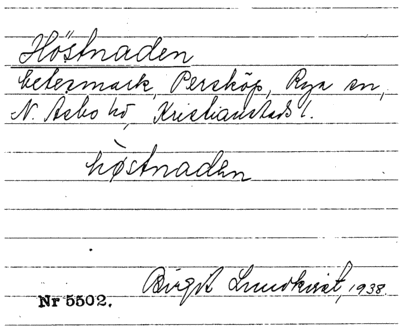 Höstnaden
betesmark, Persköp, Rya sn,
N. Åsbo hd, Kristianstads l.
hòstnaden
Birgit Lundkvist, 1938.
Nr 5502.